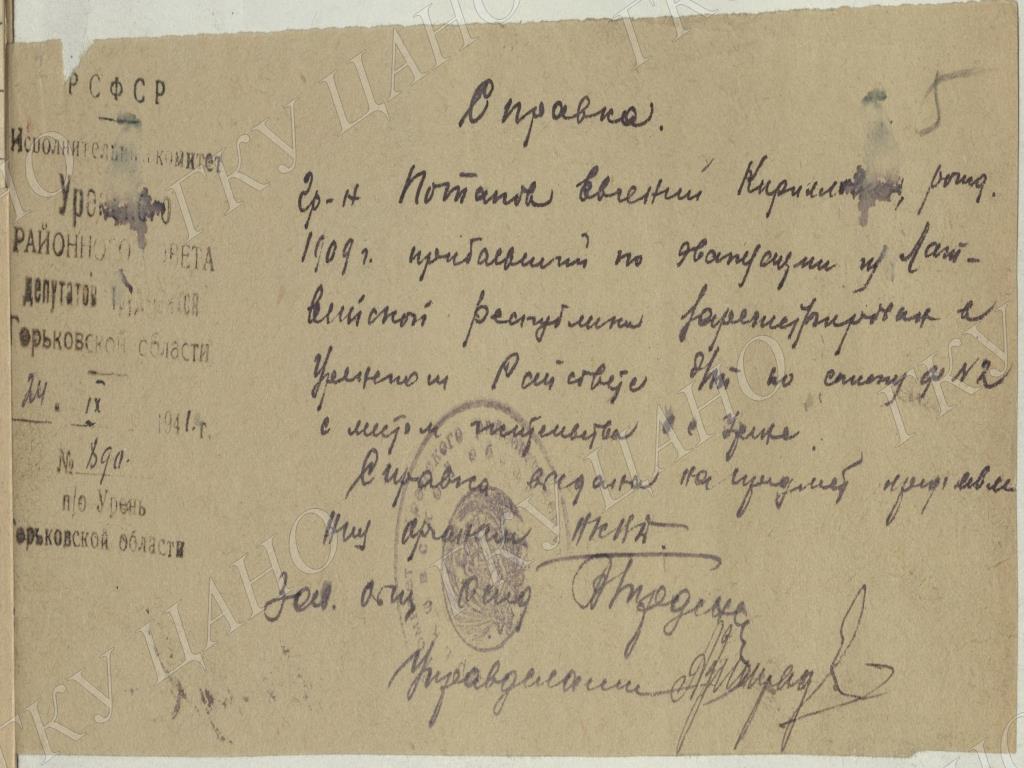 РСФСР
Исполнительный комитет
Уренского
РАЙОННОГО СОВЕТА
депутатов трудящихся
Горьковской области
24. IX 1941 г.
№ 890.
п/о Урень
Горьковской области
5
Справка.
Гр-н Потапов Евгений Кириллович, рожд.
1909 г. прибывший по эвакуации из Лат-
вийской республики зарегистрирован в
Уренском Райсовете по списку ф N2
с местом жительства в с Урень
Справка выдана на предмет предъявле
ния органам НКВД.
Зав. общ.
Управделами
ГКУ ЦАНО